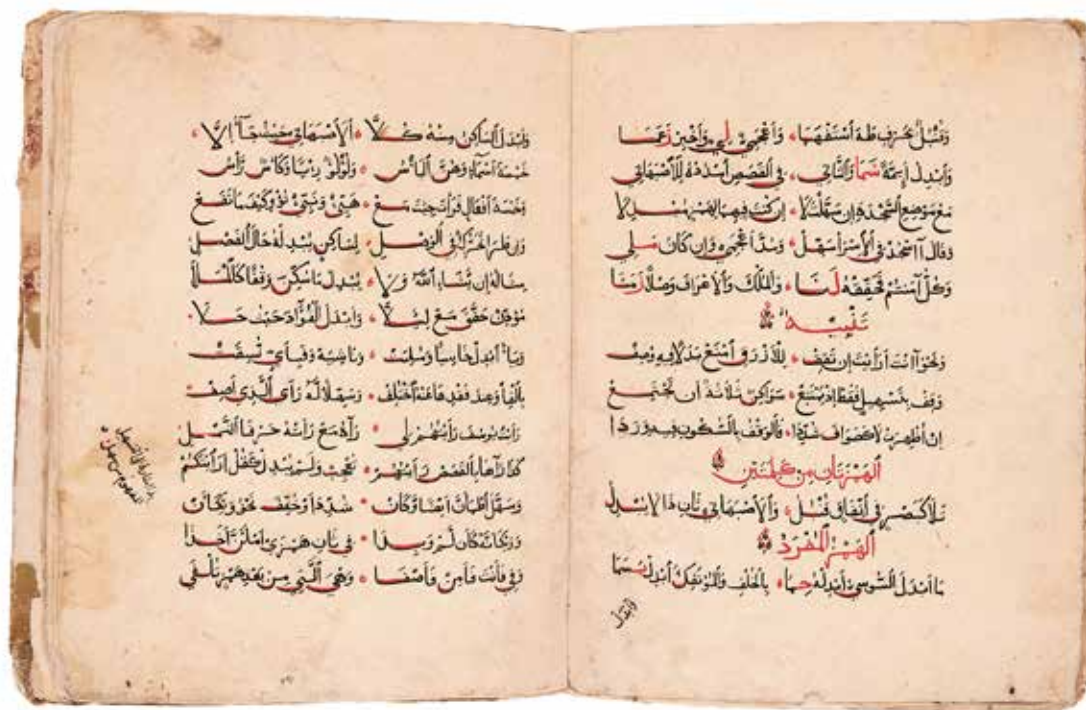 وقنبل بحرف طه استفهما • وأعجمي لي وأخبر زعما
وأبدل أيمة سما والثاني • في القصص امدده للأصبهاني
مع موضع السجدة إن سهلت لا • إن كنت فيها بالهمز مبدلا
وقال أاسجد في الأسرا سهل • ومد أعجمي وإن كان ملي
وكل آمنتم فحققه لنا • والملك والأعراف وصلا
تنبيه
ونحو أانت أرأيت إن تقف • للأزرق امنع بدلا فيه وصف
وقف بتسهيل فقط إذ يمتنع • سواكن ثلاثة أن تجتمع
إن أظهرت لا كصواف شددا • فالوقف بالسكون فيه وردا
الهمزتان من كلمتين
تلا كمصر في اتفاق قنبل • والأصبهاني باب ذا لا يبدل
الهمز المفرد
ما أبدل السوسي أبدله حما • بالخلف والمؤتفك أبدل بسما
وابدل
وأبدل الساكن منه كلا • الأصبهاني حيث جاء إلا
خمسة أسماء وهن البأس • ولؤلؤ رئيا وكأس رأس
وخمسة أفعال قرأت جئت مع • هيئ ونبئ نؤو كيفما تقع
وإن طرا التحريك في الوصل • لساكن يبدله حال الفصل
مثاله إن يشاء الله ولا • يبدل ما سكن وقفا كالملا
مؤذن حقق مع لئلا • وأبدل الفؤاد حيث حلا
وباء أبدل خاسيا وملئت • وناشية وفبأي نسقت
بالفا وعند فقدها عنه اختلف • وسهلا له رأى الذي أصف
رأيت يوسف رأيتهم لي • رآه مع رأته حرفا النمل
كذا رآها بالقصص رأيتهم • تعجب ولم يبدل كقل أرأيتكم
وسهل اطمأن أيضا وكأن • شدد أو خفف نحو ويكأن
وويكأنه كأن لم وبدا • في باب همزي أملأن آخذا
وفي فأنت فأمن فأصفا • وهي التي من بعد همز تلفي